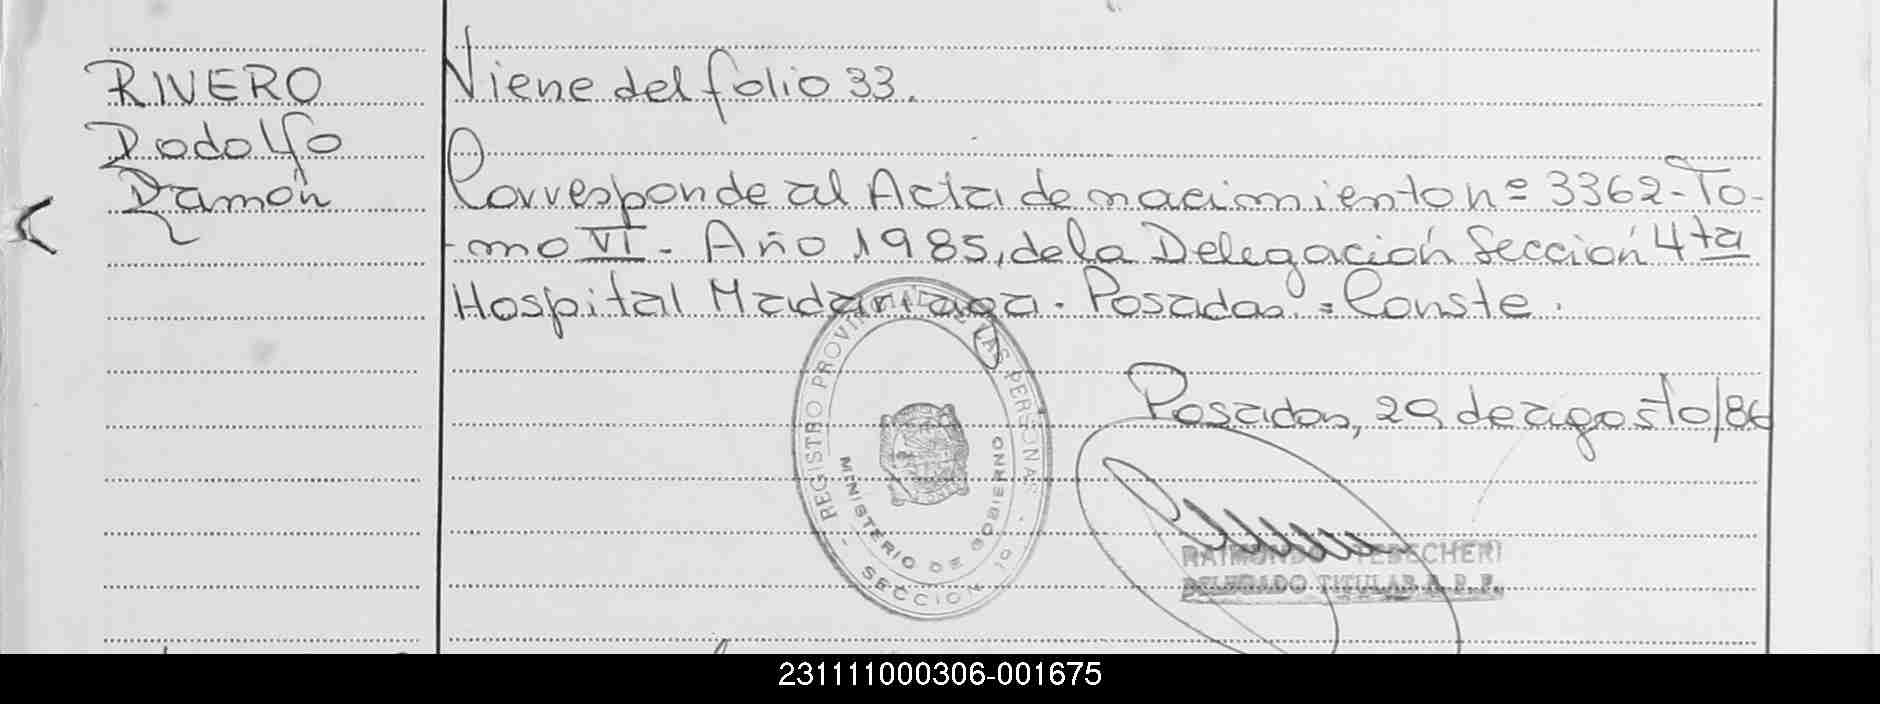 RIVERO
Rodolfo
Ramón
Viene del folio 33.
Corresponde al Acta de nacimiento nº 3362-To-
-mo VI - Año 1985, de la Delegación Sección 4ta
Hospital Madariaga. Posadas. = Conste.
Posadas, 29 de agosto/86
- REGISTRO PROVINCIAL DE LAS PERSONAS -
MINISTERIO DE GOBIERNO
SECCION 10
RAIMUNDO TEBECHERI
DELEGADO TITULAR R. P. P.
231111000306-001675